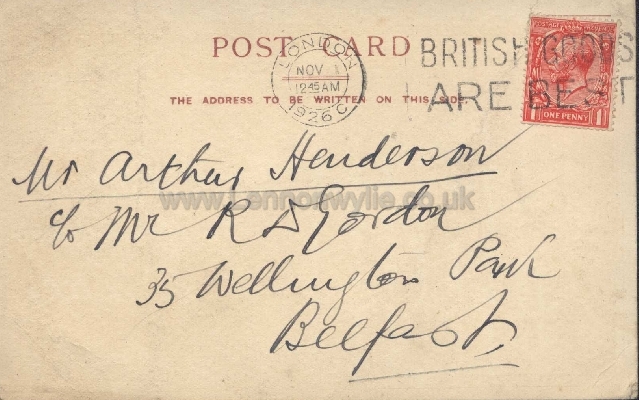 POST CARD
LONDON
NOV 1
12.45 AM
1926 C
BRITISH GOODS
ARE BEST
THE ADDRESS TO BE WRITTEN ON THIS SIDE
1 ONE PENNY 1
Mr Arthur Henderson
www.Lennonwylie.co.uk
c/o Mr R D Gordon
35 Wellington Park
Belfast